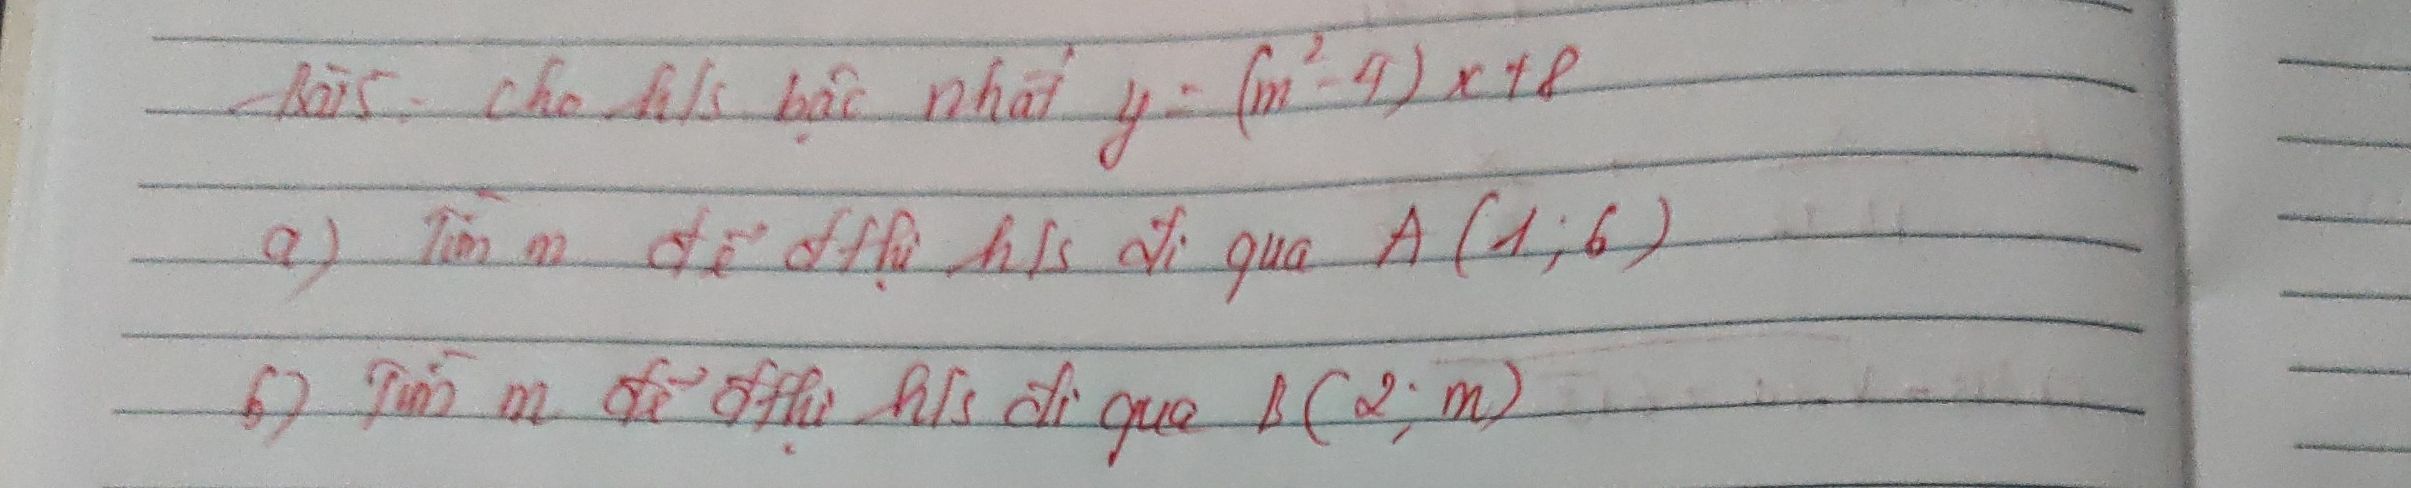 Bài 5. Cho h/s bậc nhất y = (m² - 4) x + 8
a) Tìm m để đthị h/s đi qua A (1; 6)
b) Tìm m để đthị h/s đi qua B (2; m)